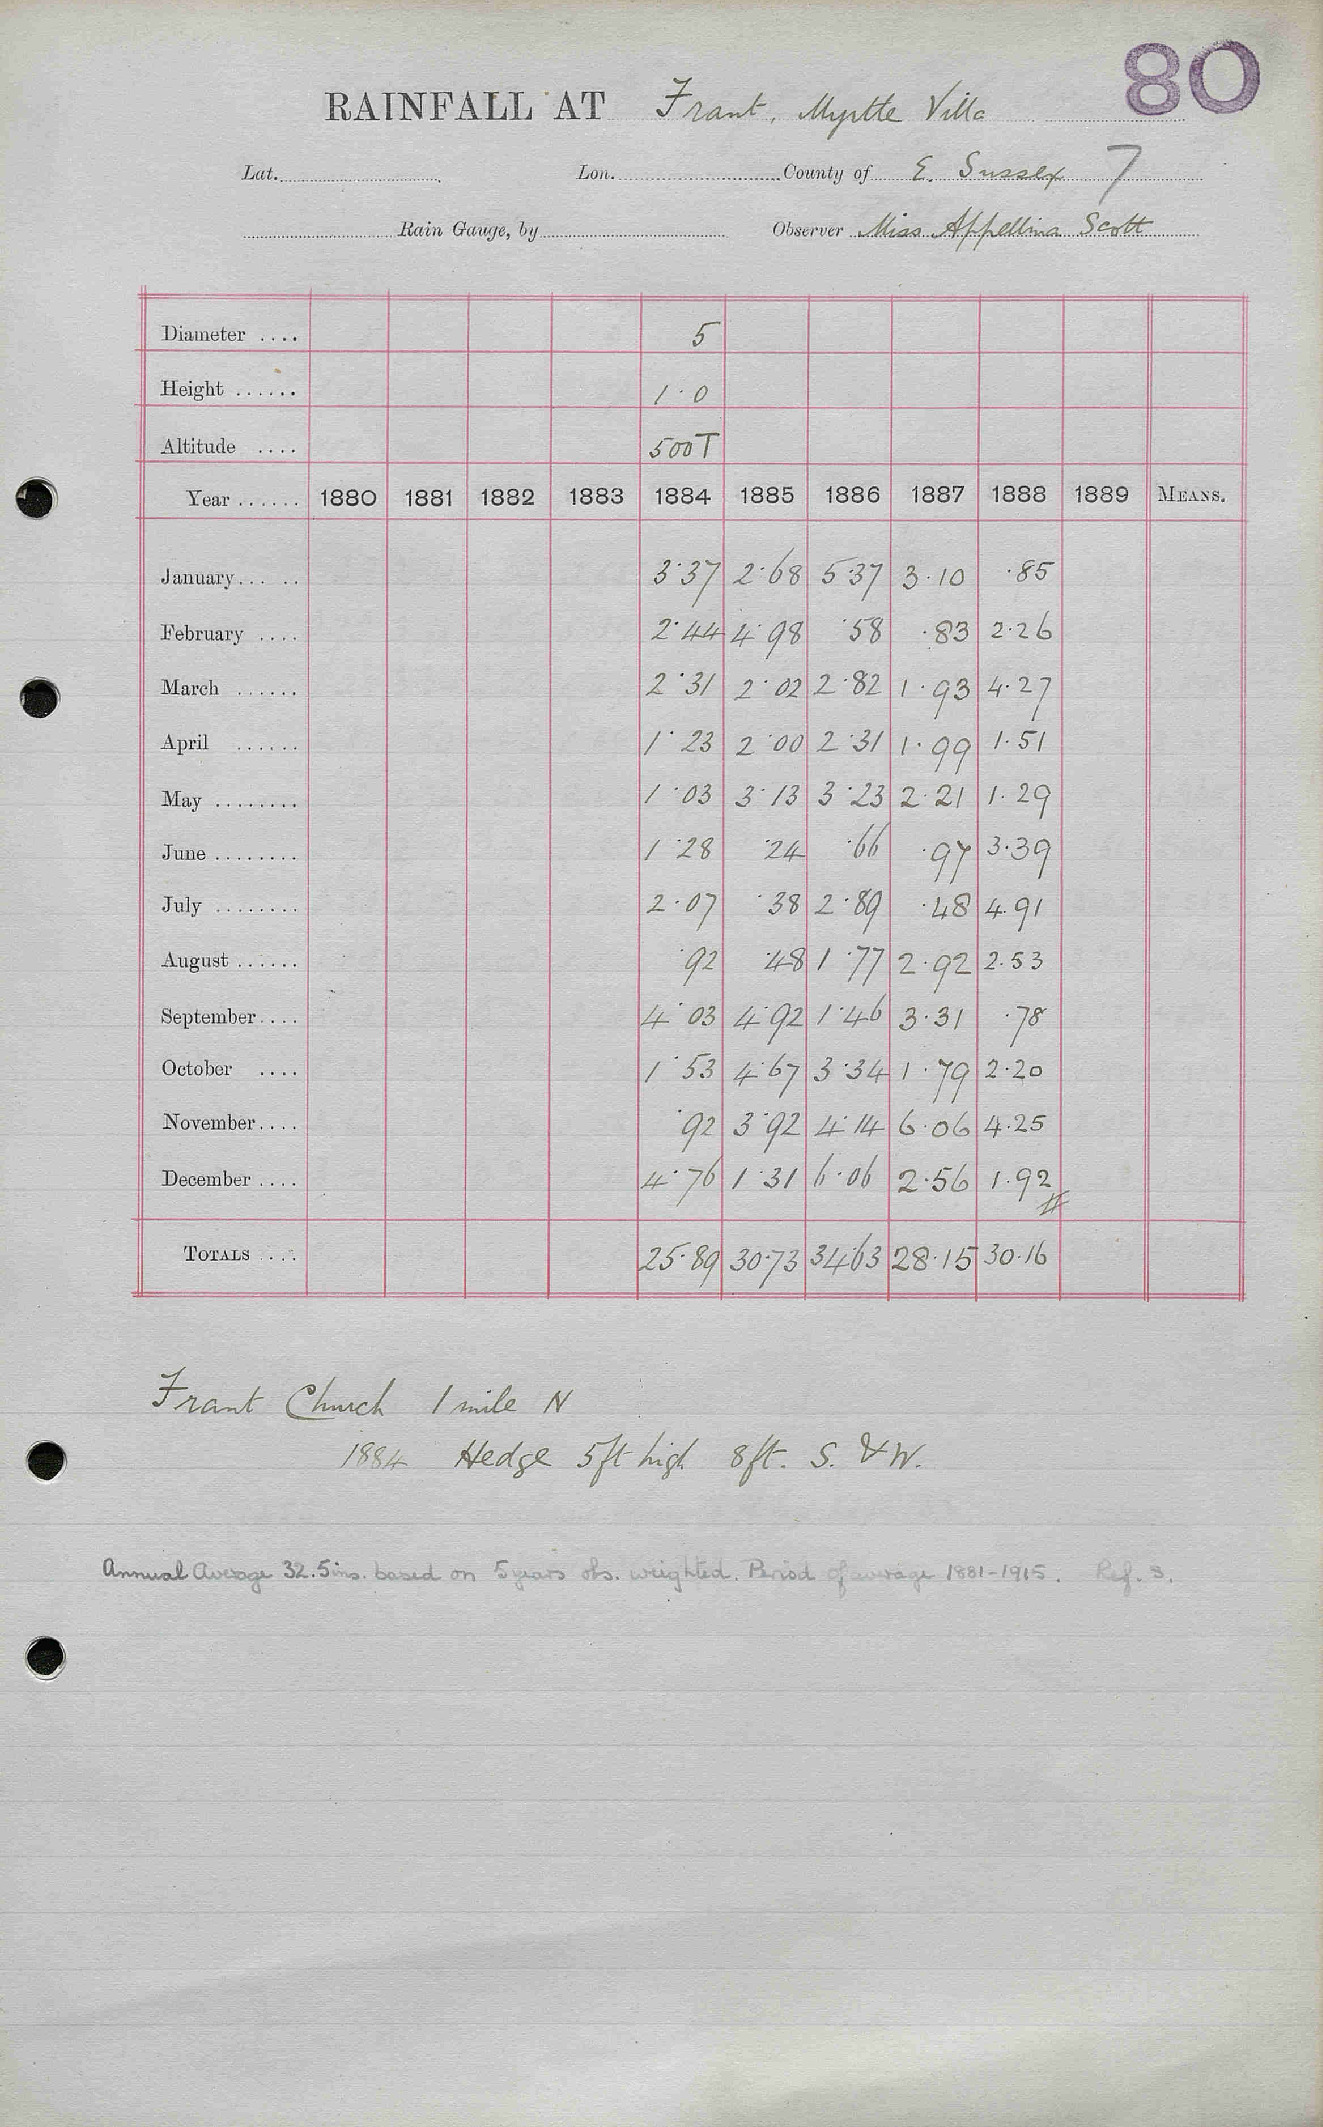 80
RAINFALL AT Frant, Myrtle Villa
Lat. Lon. County of E. Sussex 7
Rain Gauge, by Observer Miss Appellina Scott
Diameter .... 5
Height ...... 1·0
Altitude .... 500T
Year ...... 1880 1881 1882 1883 1884 1885 1886 1887 1888 1889 MEANS.
January... .. 3·37 2·68 5·37 3·10 ·85
February .... 2·44 4·98 ·58 ·83 2·26
March ...... 2·31 2·02 2·82 1·93 4·27
April ...... 1·23 2·00 2·31 1·99 1·51
May ........ 1·03 3·13 3·23 2·21 1·29
June ........ 1·28 ·24 ·66 ·97 3·39
July ........ 2·07 ·38 2·89 ·48 4·91
August ...... ·92 ·48 1·77 2·92 2·53
September.... 4·03 4·92 1·46 3·31 ·78
October .... 1·53 4·67 3·34 1·79 2·20
November.... ·92 3·92 4·14 6·06 4·25
December .... 4·76 1·31 6·06 2·56 1·92
TOTALS .... 25·89 30·73 34·63 28·15 30·16
Frant Church 1 mile N
1884 Hedge 5ft high 8ft. S. & W.
Annual Average 32.5ins. based on 5 years obs. weighted. Period of average 1881-1915. Ref. S.